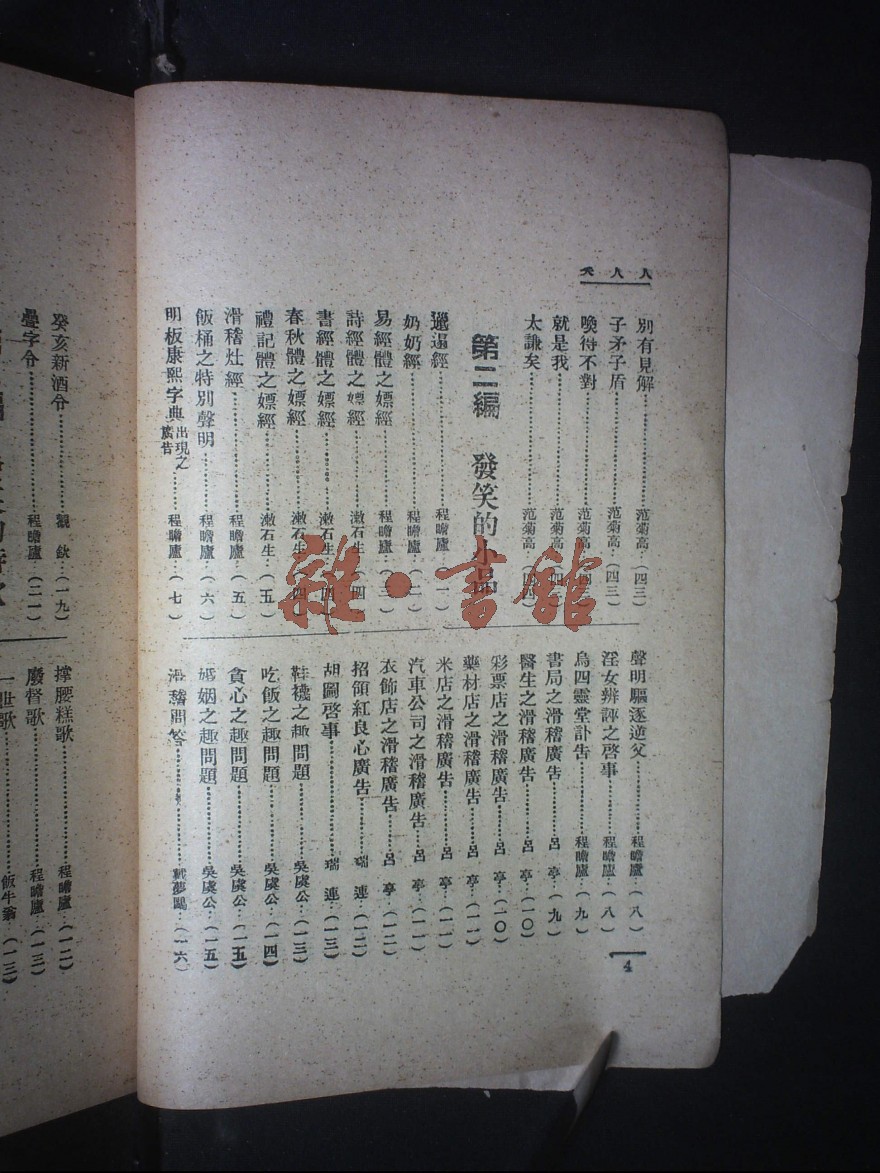 人人笑
別有見解……………范菊高…(四三)
子矛子盾……………范菊高…(四三)
喚得不對……………范菊高…(四四)
就是我……………范菊高…(四四)
太謙矣……………范菊高…(四四)
第二編 發笑的小品
邋遢經……………程瞻廬…(一)
奶奶經……………程瞻廬…(二)
易經體之嫖經……………程瞻廬…(三)
詩經體之嫖經……………漱石生…(四)
書經體之嫖經……………漱石生…(四)
春秋體之嫖經……………漱石生…(四)
禮記體之嫖經……………漱石生…(五)
滑稽灶經……………程瞻廬…(五)
飯桶之特別聲明……………程瞻廬…(六)
明板康熙字典出現之廣告……………程瞻廬…(七)
聲明驅逐逆父……………程瞻廬…(八)
淫女辨誣之啓事……………程瞻廬…(八)
烏四靈堂訃告……………程瞻廬…(九)
書局之滑稽廣告……………呂 亭…(九)
醫生之滑稽廣告……………呂 亭…(一〇)
彩票店之滑稽廣告……………呂 亭…(一〇)
藥材店之滑稽廣告……………呂 亭…(一一)
米店之滑稽廣告……………呂 亭…(一一)
汽車公司之滑稽廣告……………呂 亭…(一一)
衣飾店之滑稽廣告……………呂 亭…(一二)
招領紅良心廣告……………瑞 連…(一二)
胡圖啓事……………瑞 連…(一三)
鞋襪之趣問題……………吳虞公…(一三)
吃飯之趣問題……………吳虞公…(一四)
貪心之趣問題……………吳虞公…(一五)
婚姻之趣問題……………吳虞公…(一五)
滑稽問答……………戴夢鷗…(一六)
4
癸亥新酒令……………(一九)
疊字令……………程瞻廬…(二一)
撑腰糕歌……………程瞻廬…(一二)
廢督歌……………程瞻廬…(一三)
一世歌……………飯牛翁…(一三)
雜·書館